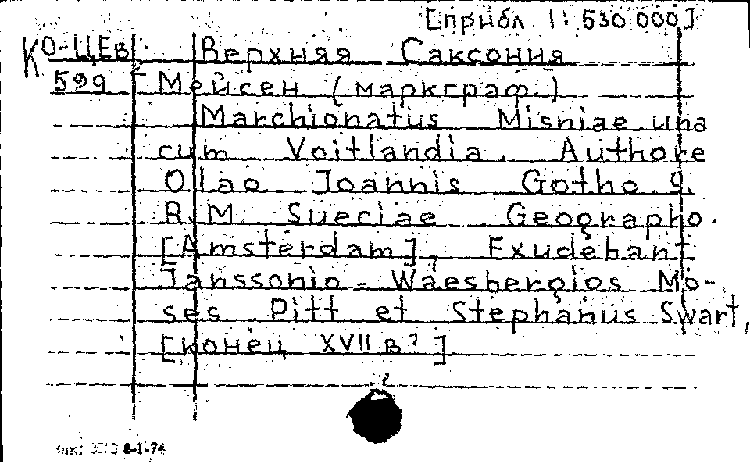 [прибл 1: 530 000]
К О-ЦЕв Верхняя Саксония
599 Мейсен (маркграф.)
Marchionatus Misniae una
cum Voitlandia. Authore
Olao Joannis Gotho S.
R. M. Sueciae Geographo.
[Amsterdam], Exudebant
Janssonio-Waesbergios Mo-
ses Pitt et Stephanus Swart,
[конец XVII в?]